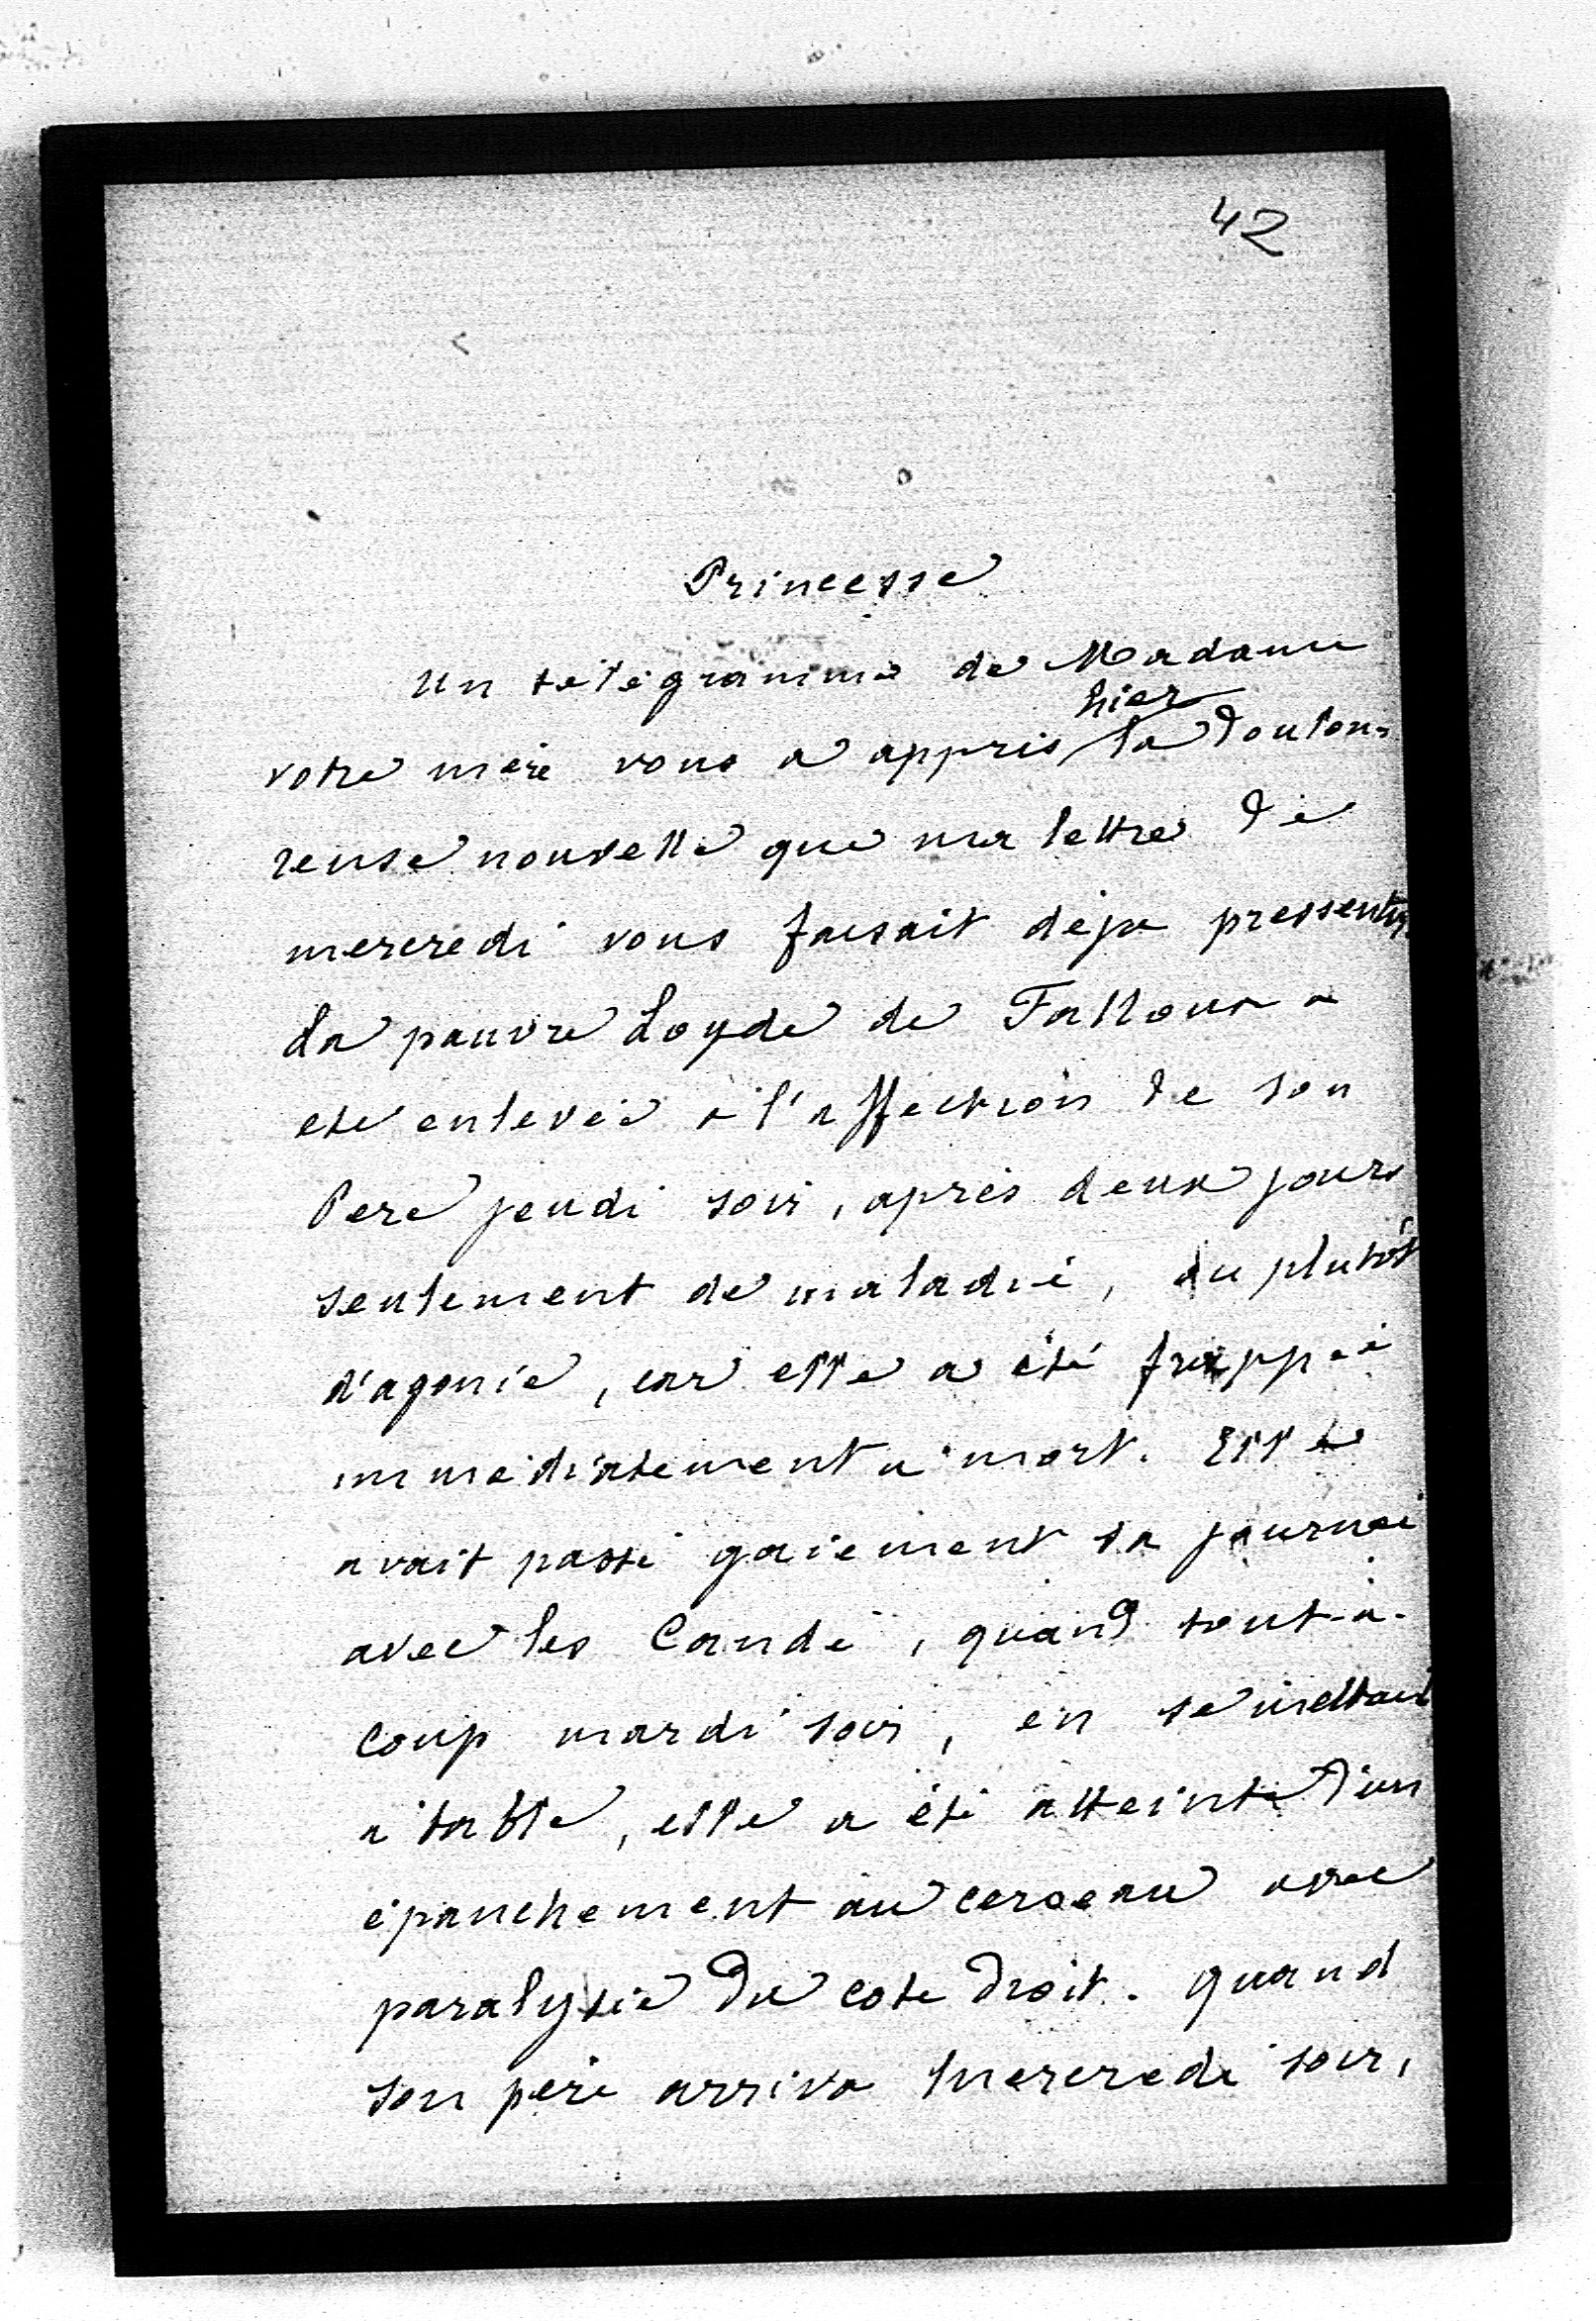 42
Princesse
Un télégramme de Madame
hier
votre mère vous a appris la doulou=
reuse nouvelle que ma lettre de
mercredi vous faisait déja pressentir.
La pauvre Loyde de Falloux a
été enlevée à l'affection de son
Père jeudi soir, après deux jours
seulement de maladie, ou plutôt
d'agonie, car elle a été frappée
immédiatement à mort. Elle
avait passé gaiement sa journée
avec les Candé, quand tout-à-
coup mardi soir, en se mettant
à table, elle a été atteinte d'un
épanchement au cerveau avec
paralysie du coté droit. quand
son père arriva mercredi soir,